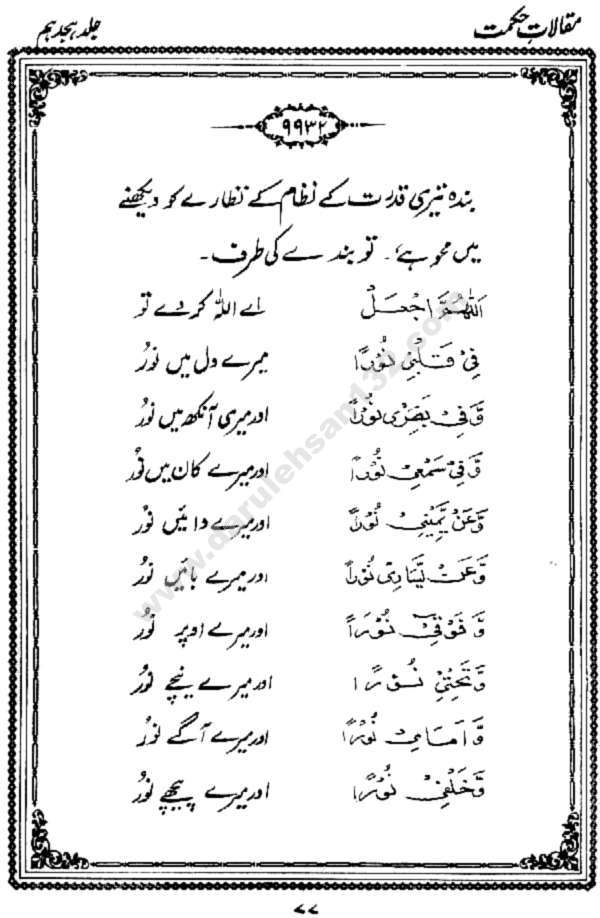 مقالاتِ حکمت جلد ہیجدہم
۹۹۳۲
بندہ تیری قدرت کے نظام کے نظارے کو دیکھنے
میں محو ہے، تو بندے کی طرف۔
اَللّٰهُمَّ اجْعَلْ اے اللہ کر دے تو
فِیْ قَلْبِیْ نُوْرًا میرے دل میں نُور
وَّفِیْ بَصَرِیْ نُوْرًا اور میری آنکھ میں نُور
وَّفِیْ سَمْعِیْ نُوْرًا اور میرے کان میں نُور
وَّعَنْ یَّمِیْنِیْ نُوْرًا اور میرے دائیں نُور
وَّعَنْ یَّسَارِیْ نُوْرًا اور میرے بائیں نُور
وَّ فَوْقِیْ نُوْرًا اور میرے اوپر نُور
وَّتَحْتِیْ نُوْرًا اور میرے نیچے نُور
وَّ اَمَامِیْ نُوْرًا اور میرے آگے نُور
وَّخَلْفِیْ نُوْرًا اور میرے پیچھے نُور
۷۷
www.darulehsan132.com